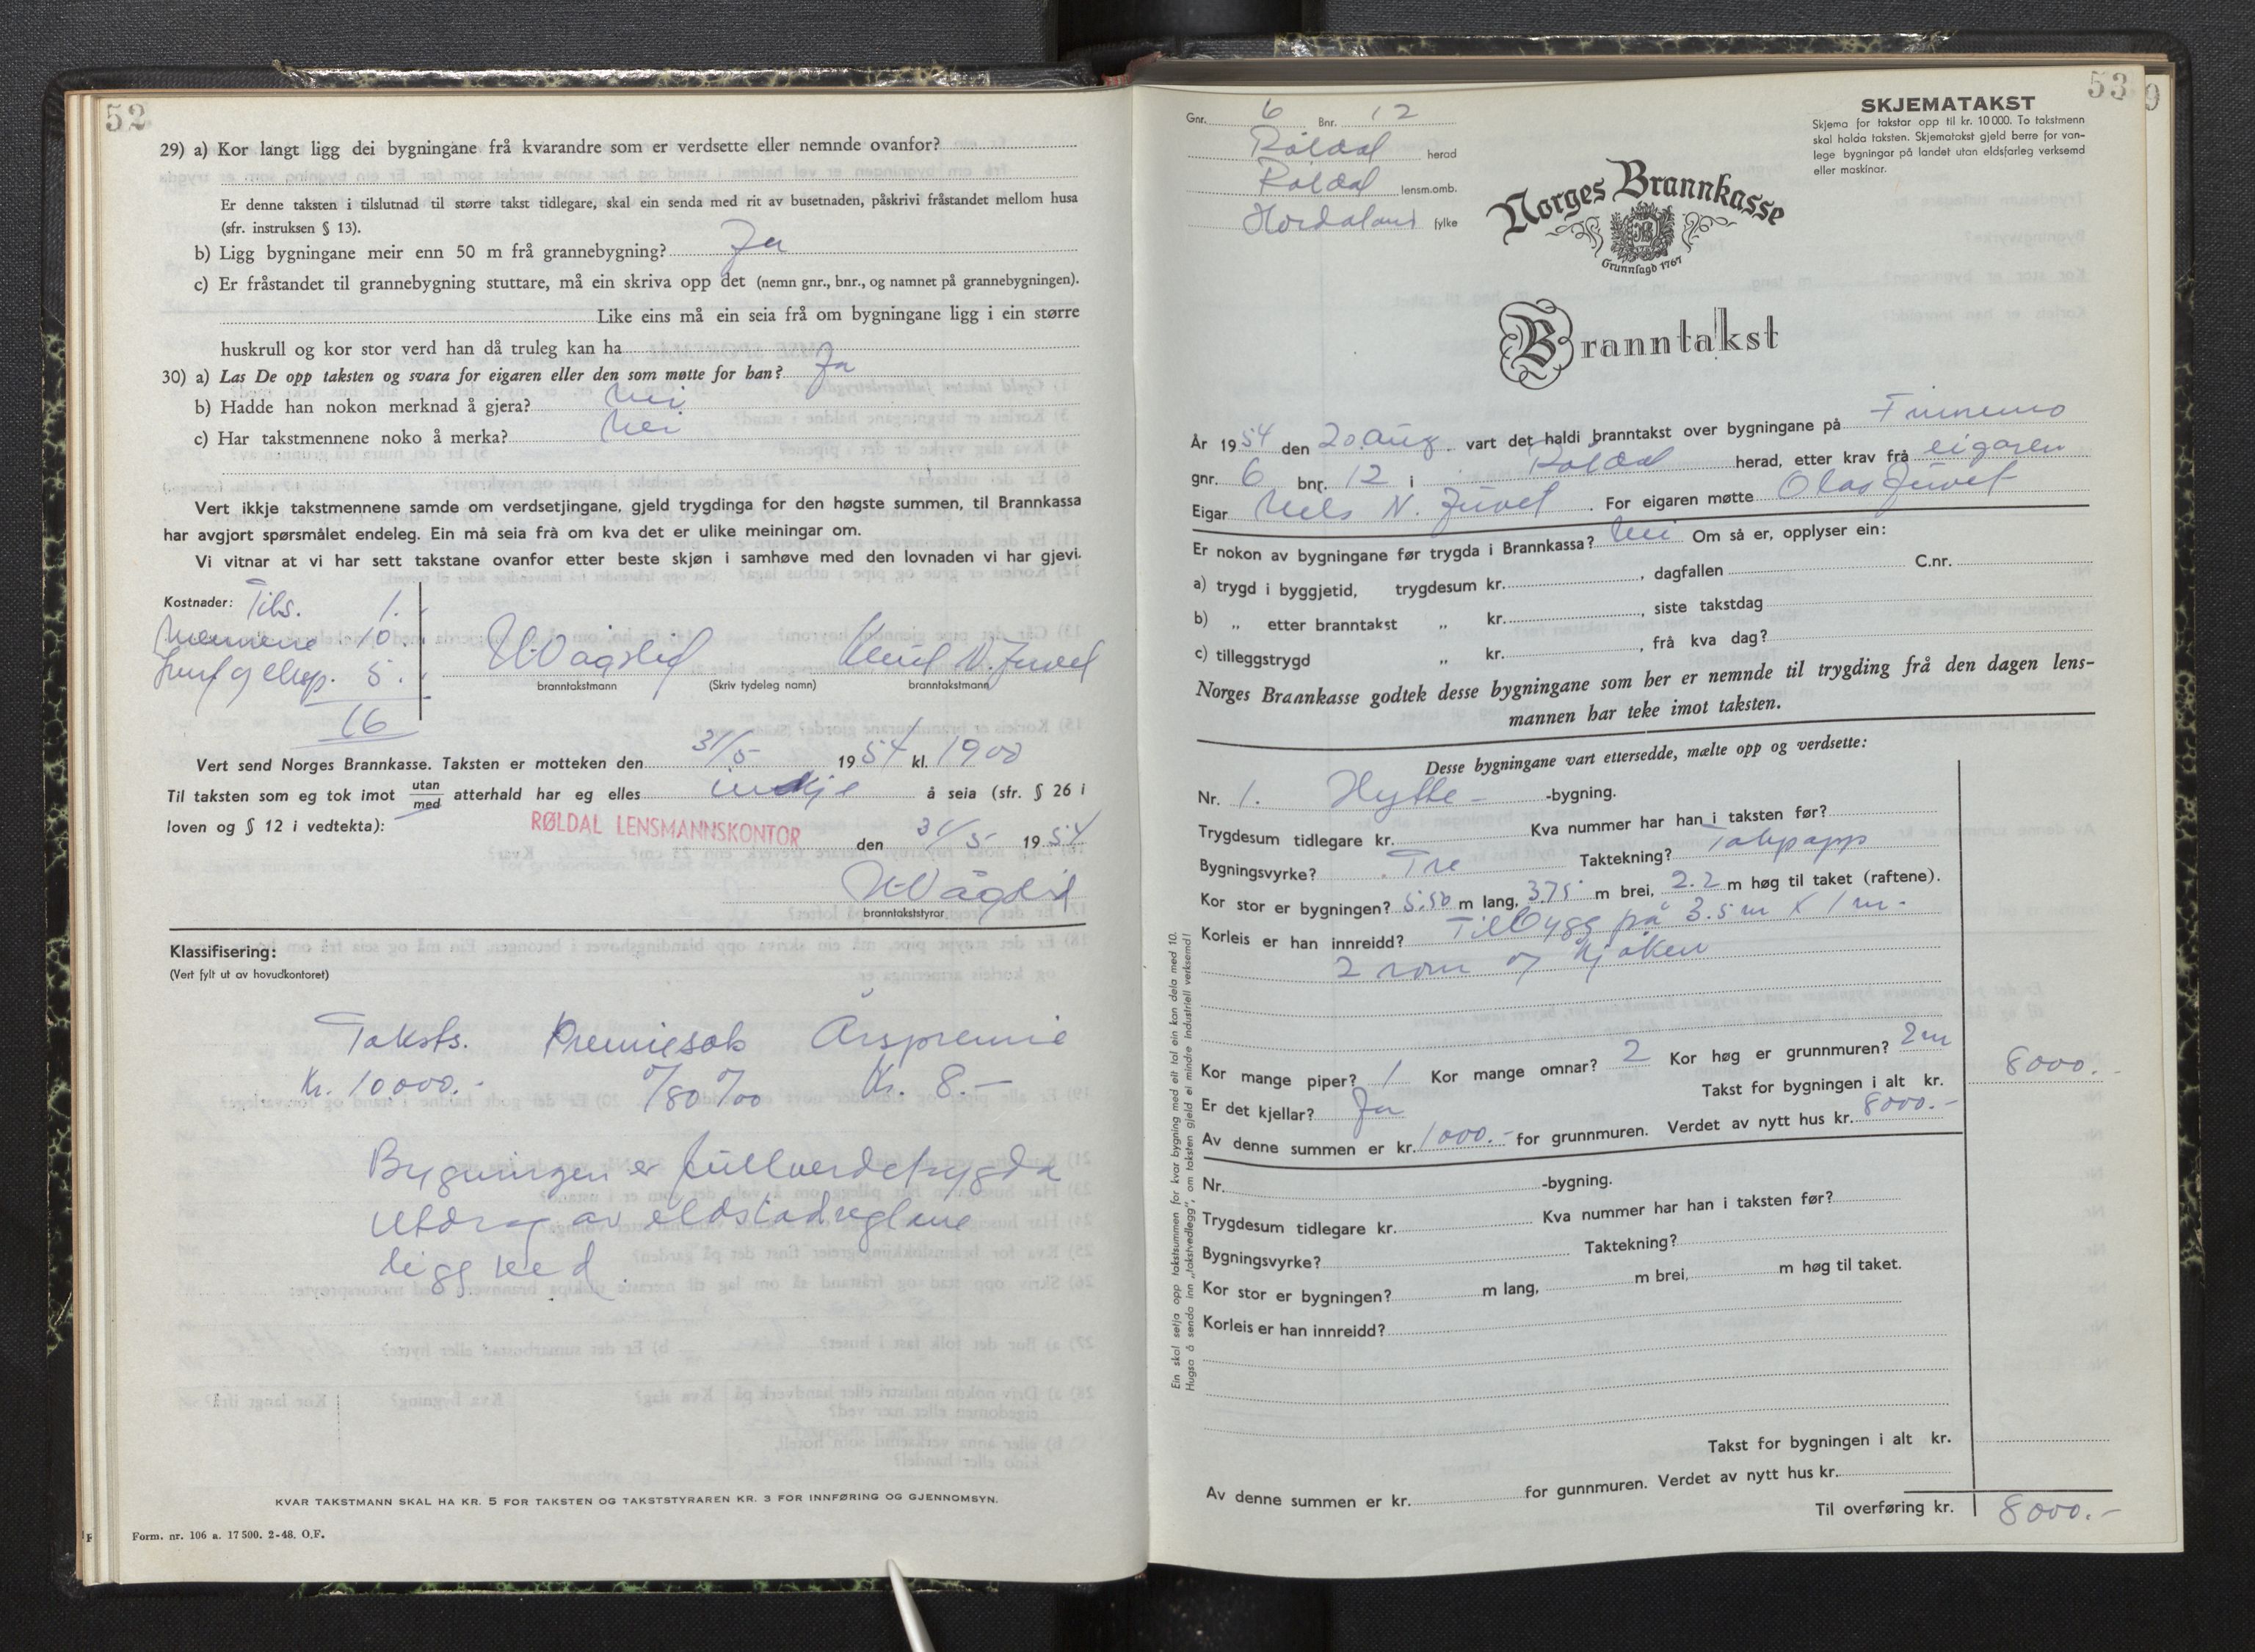 52
29) a) Kor langt ligg dei bygningane frå kvarandre som er verdsette eller nemnde ovanfor?
Er denne taksten i tilslutnad til større takst tidlegare, skal ein senda med rit av busetnaden, påskrivi fråstandet mellom husa
(sfr. instruksen § 13).
b) Ligg bygningane meir enn 50 m frå grannebygning? Ja
c) Er fråstandet til grannebygning stuttare, må ein skriva opp det (nemn gnr., bnr., og namnet på grannebygningen).
Like eins må ein seia frå om bygningane ligg i ein større
huskrull og kor stor verd han då truleg kan ha
30) a) Las De opp taksten og svara for eigaren eller den som møtte for han? Ja
b) Hadde han nokon merknad å gjera? Nei
c) Har takstmennene noko å merka? Nei
Vert ikkje takstmennene samde om verdsetjingane, gjeld trygdinga for den høgste summen, til Brannkassa
har avgjort spørsmålet endeleg. Ein må seia frå om kva det er ulike meiningar om.
Vi vitnar at vi har sett takstane ovanfor etter beste skjøn i samhøve med den lovnaden vi har gjevi.
Kostnader: Tils. 1.
Mennene 10.
5.
16
H Vågslid Knut N. Juvel
branntakstmann (Skriv tydeleg namn) branntakstmann
Vert send Norges Brannkasse. Taksten er motteken den 31/5 1954 kl. 1900
Til taksten som eg tok imot utan/med atterhald har eg elles inkje å seia (sfr. § 26 i
loven og § 12 i vedtekta):
RØLDAL LENSMANNSKONTOR den 31/5 1954
H Vågslid
branntakststyrar
Klassifisering:
(Vert fylt ut av hovudkontoret)
Taksts. Premiesats Årspremie
Kr. 10000.- 0/80 o/oo Kr. 8.-
Bygningen er fullverdetrygda
Utdrag av eldstadreglane
ligg ved.
KVAR TAKSTMANN SKAL HA KR. 5 FOR TAKSTEN OG TAKSTSTYRAREN KR. 3 FOR INNFØRING OG GJENNOMSYN.
Form. nr. 106 a. 17 500. 2-48. O.F.
53
9
Gnr. 6 Bnr. 12
Røldal herad
Røldal lensm.omb.
Hordaland fylke
SKJEMATAKST
Skjema for takstar opp til kr. 10 000. To takstmenn
skal halda taksten. Skjematakst gjeld berre for van-
lege bygningar på landet utan eldsfarleg verksemd
eller maskinar.
Norges Brannkasse
Grunnlagd 1767
Branntakst
År 1954 den 20. aug. vart det haldi branntakst over bygningane på
gnr. 6 bnr. 12 i Røldal herad, etter krav frå eigaren
Eigar Nils N. Juvel. For eigaren møtte Olav Juvel
Er nokon av bygningane før trygda i Brannkassa? Nei Om så er, opplyser ein:
a) trygd i byggjetid, trygdesum kr. , dagfallen C.nr.
b) „ etter branntakst „ kr. , siste takstdag
c) tilleggstrygd „ kr. , frå kva dag?
Norges Brannkasse godtek desse bygningane som her er nemnde til trygding frå den dagen lens-
mannen har teke imot taksten.
Desse bygningane vart ettersedde, mælte opp og verdsette:
Nr. 1. Hytte- -bygning.
Trygdesum tidlegare kr. Kva nummer har han i taksten før?
Bygningsvyrke? Tre Taktekning? Takpapp
Kor stor er bygningen? 5.50 m lang, 3.75 m brei, 2.2 m høg til taket (raftene).
Korleis er han innreidd? Tilbygg på 3.5 m x 1 m.
2 rom og kjøken
Kor mange piper? 1 Kor mange omnar? 2 Kor høg er grunnmuren? 2 m
Er det kjellar? Ja Takst for bygningen i alt kr. 8000.-
Av denne summen er kr. 1000.- for grunnmuren. Verdet av nytt hus kr. 8000.-
Nr. -bygning.
Trygdesum tidlegare kr. Kva nummer har han i taksten før?
Bygningsvyrke? Taktekning?
Kor stor er bygningen? m lang, m brei, m høg til taket.
Korleis er han innreidd?
Takst for bygningen i alt kr.
Av denne summen er kr. for gunnmuren. Verdet av nytt hus kr.
Til overføring kr. 8000.-
Ein skal setja opp takstsummen for kvar bygning med eit tal ein kan dela med 10.
Hugsa å senda inn „takstvedlegg”, om taksten gjeld ei mindre industriell verksemd!